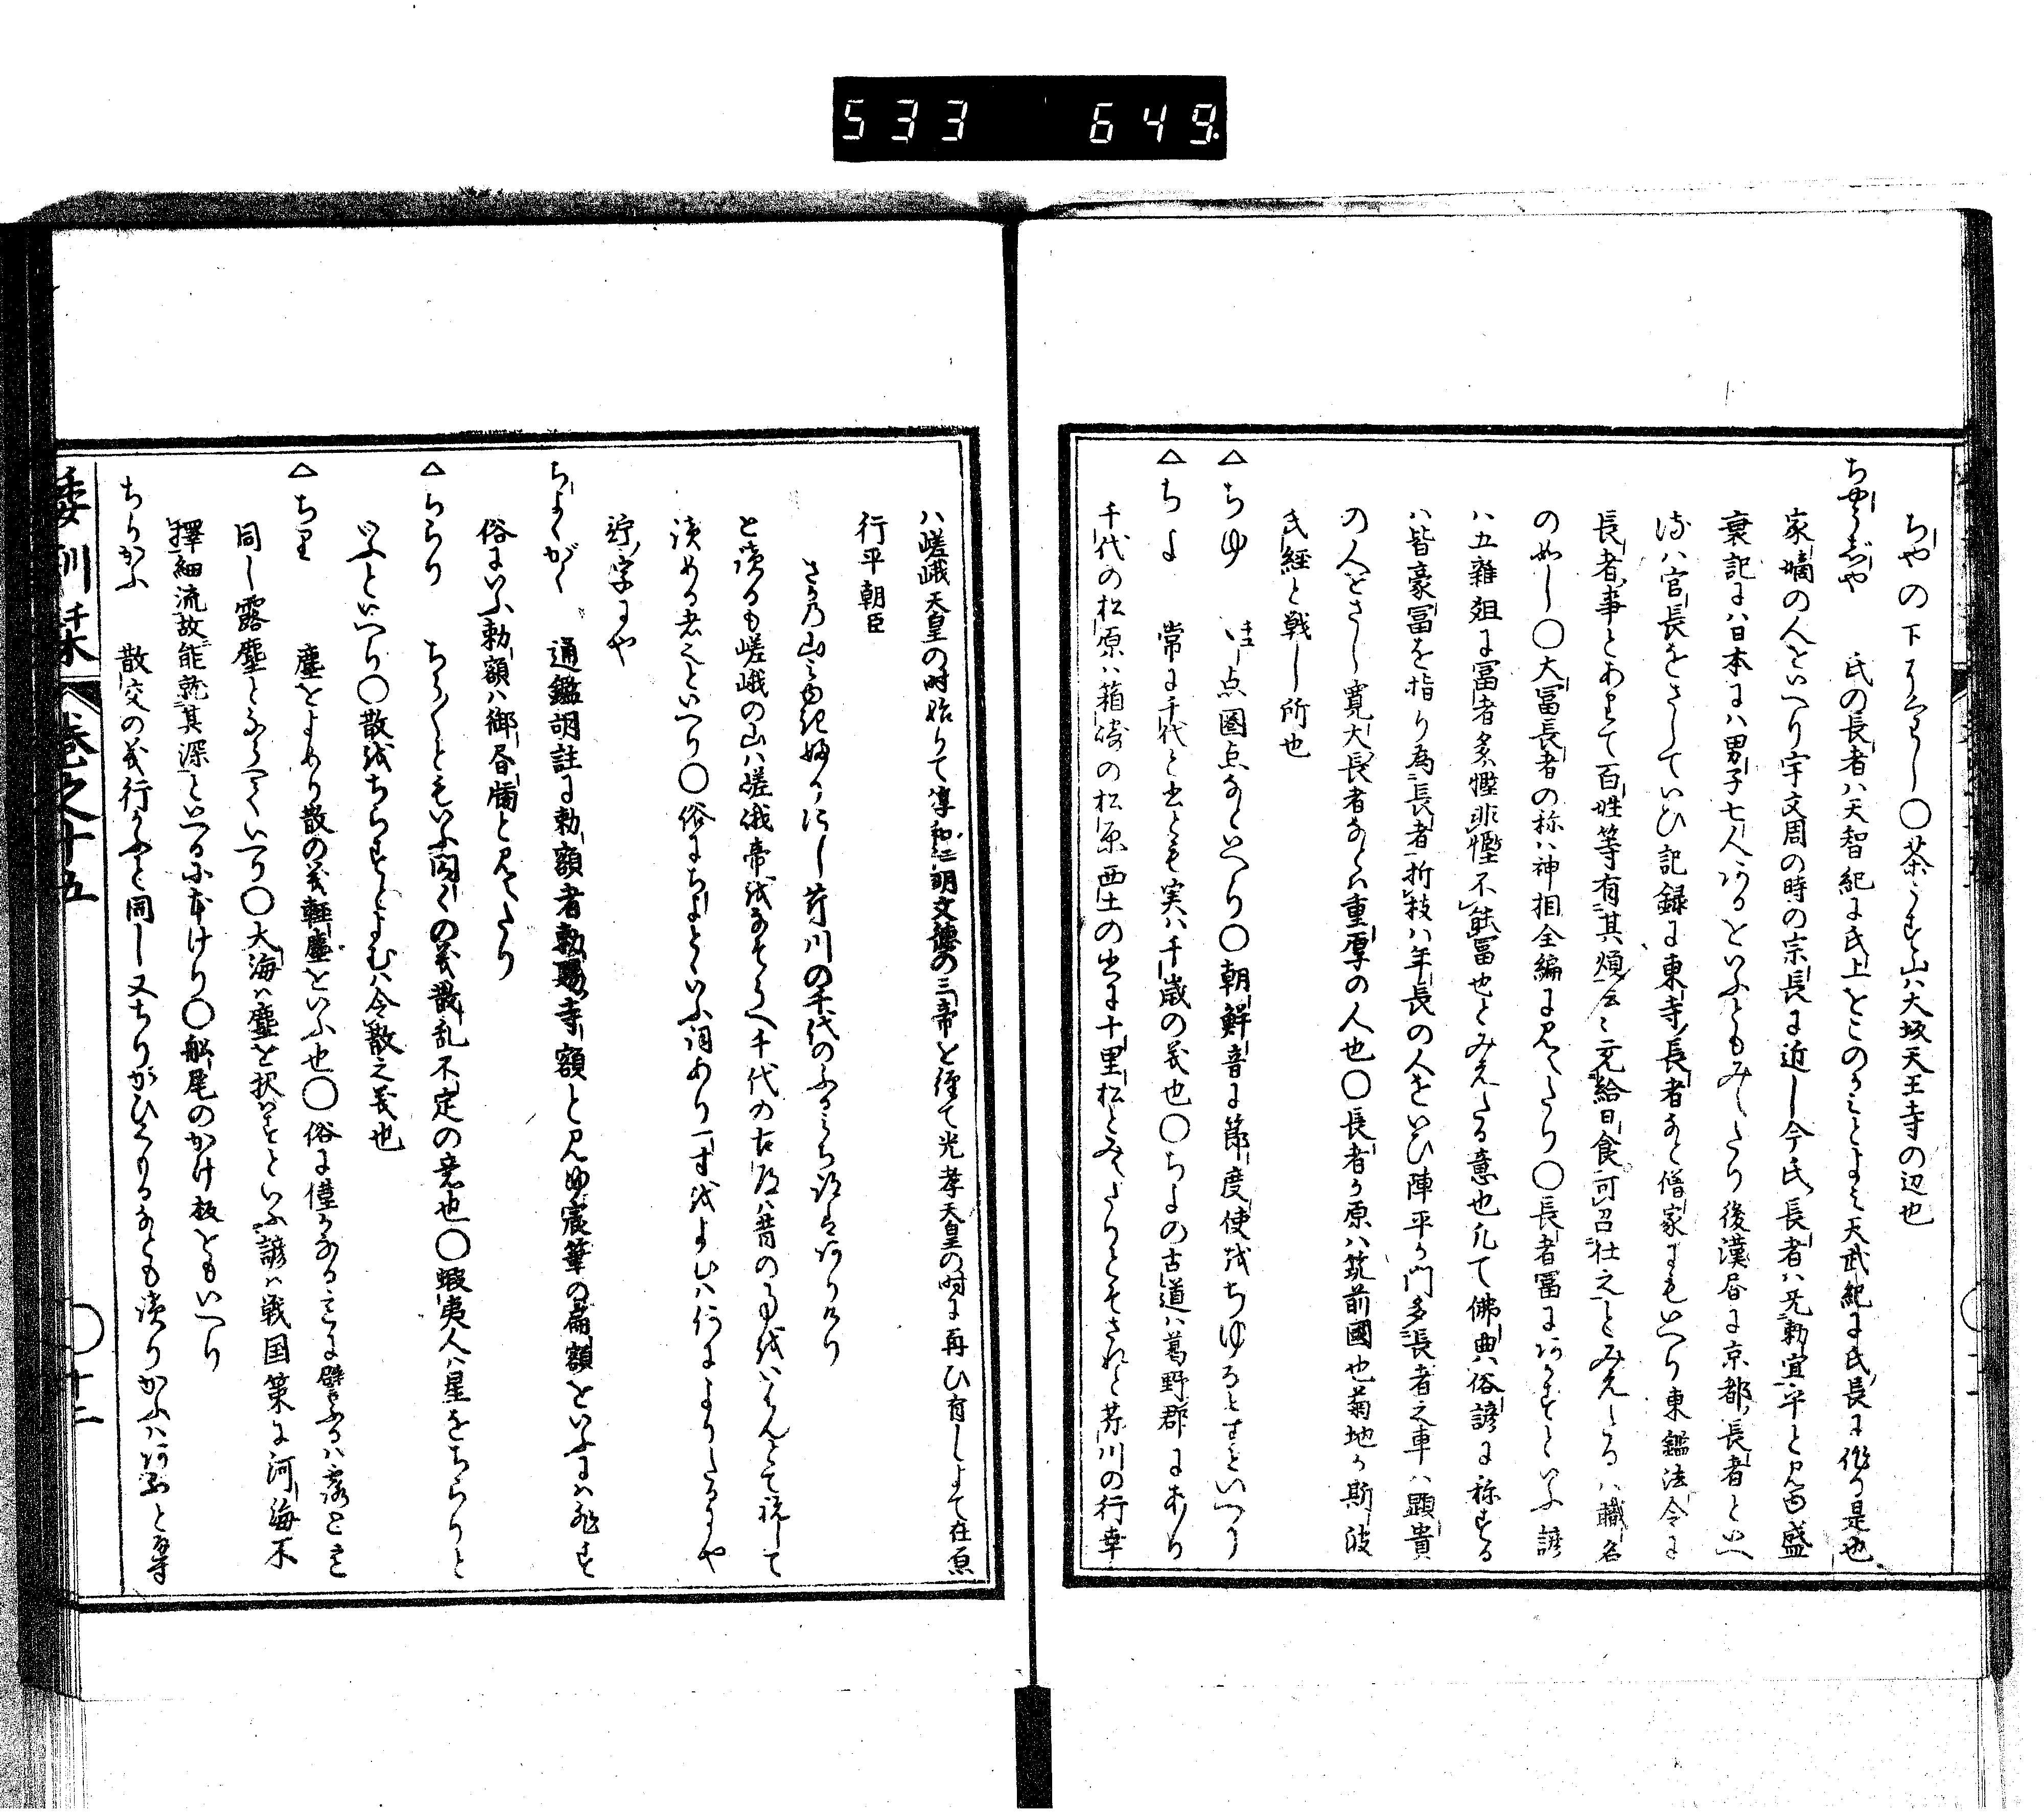 533 649
ちやの下にくはし〇茶うす山ハ大坂天王寺の辺也
ちやうじや 氏の長者ハ天智紀に氏上をこのかみとよみ天武紀に氏長に作る是也
家嫡の人をいへり宇文周の時の宗長に近し今氏長者ハ先勅宣乎と見ゆ盛
衰記にハ日本にハ男子七人あるをいふともみえたり後漢書に京都長者といへ
るハ官長をさしていひ記録に東寺長者なと僧家にもいへり東鑑法令に
長者事とあつて百姓等有其煩云々充給日食可召仕之とみえたるハ職名
のめし〇大冨長者の称ハ神相全編に見えたり〇長者冨にあかすといふ諺
ハ五雑俎に冨者多慳非慳不能冨也とみえたる意也凡て佛典俗諺に称する
ハ皆豪冨を指り為長者折枝ハ年長の人をいひ陣平か門多長者之車ハ顕貴
の人をさし寛大長者なとハ重厚の人也〇長者か原ハ筑前國也菊地か斯波
氏経と戦し所也
△ちゆ 点圏点なといへり〇朝鮮音に節度使をちゆるとすといへり
△ちよ 常に千代と書とも実ハ千歳の義也〇ちよの古道ハ葛野郡にあり
千代の松原ハ箱崎の松原西土の書に十里松とみえたりとそされと芹川の行幸
ハ嵯峨天皇の時始りて淳和仁明文徳の三帝を経て光孝天皇の時に再ひ有しよて在原
行平朝臣
さかの山みゆき絶にし芹川の千代のふるみち跡ハありけり
と讀るも嵯峨の山ハ嵯峨帝をなそらへ千代の古道ハ昔の事をいはんとて祝して
讀める者也といへり〇俗にちよといふ詞あり一寸をよむハ何によりたるにや
竚字にや
ちよくがく 通鑑胡註に勅額者勅賜寺額と見ゆ宸筆の扁額をいふにハ非す
俗にいふ勅額ハ御書牗と見えたり
△ちらり ちら〱ともいふ閃々の義散乱不定の意也〇蝦夷人ハ星をちらりと
いふといへり〇散をちらすとよむハ令散之義也
△ちり 塵をよめり散の義軽塵をいふ也〇俗に僅かなる事に譬ふるハ露と
同し露塵とつらねていへり〇大海ハ塵を択はすといふ諺ハ戦国策に河海不
擇細流故能就其深といへるに本けり〇船尾のかけ板をもいへり
ちりかふ 散交の義行かふと同し又ちりがひくもるなとも讀りかふハあふと通す
倭訓栞 巻之十五 〇十二